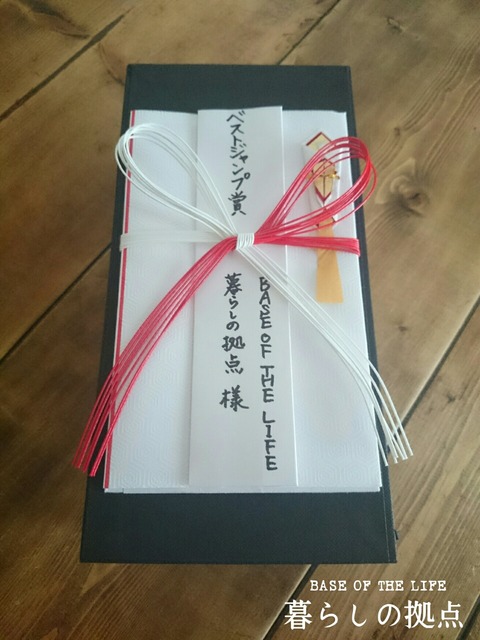 ベストジャンプ賞
BASE OF THE LIFE
暮らしの拠点 様
BASE OF THE LIFE
暮らしの拠点